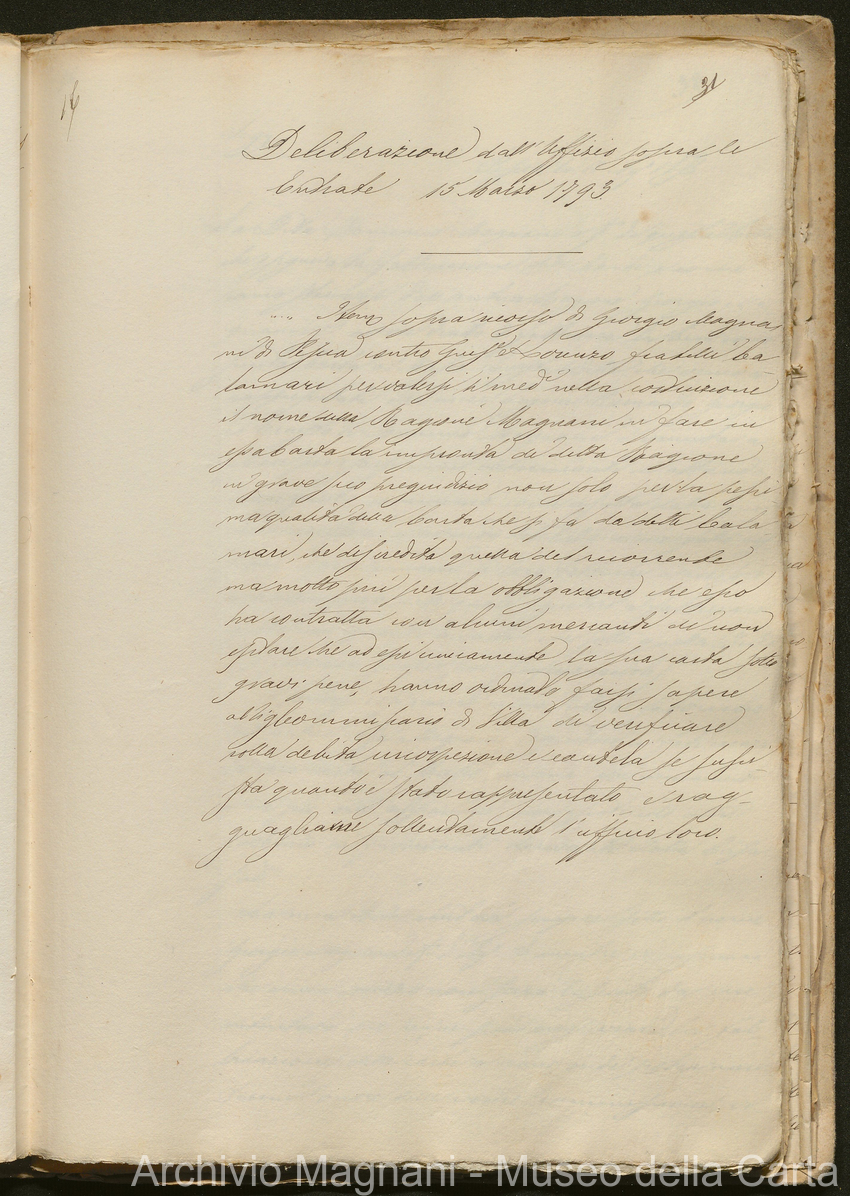 16
31
Deliberazione dall'Uffizio sopra le
Entrate 15 Marzo 1793
.... Item sopra ricorso di Giorgio Magna
ni di Pescia contro Gius.e e Lorenzo fratelli Ca
lamari per valersi i med.i nella costruzione
il nome della Ragione Magnani in fare in
essa Carta la impronta di detta Ragione
in grave suo pregiudizio non solo per la pessi
ma qualità della Carta che si fa da detti Cala
mari, che discredita quella del ricorrente
ma molto più per la obbligazione che esso
ha contratta con alcuni mercanti di non
esitare che ad essi unicamente la sua carta sotto
gravi pene, hanno ordinato farsi sapere
al Sig Commissario di Villa di verificare
colla debita circospezione e cautela se sussi-
sta quanto è stato rappresentato e rag-
guagliarne sollecitamente l'uffizio loro.
Archivio Magnani - Museo della Carta